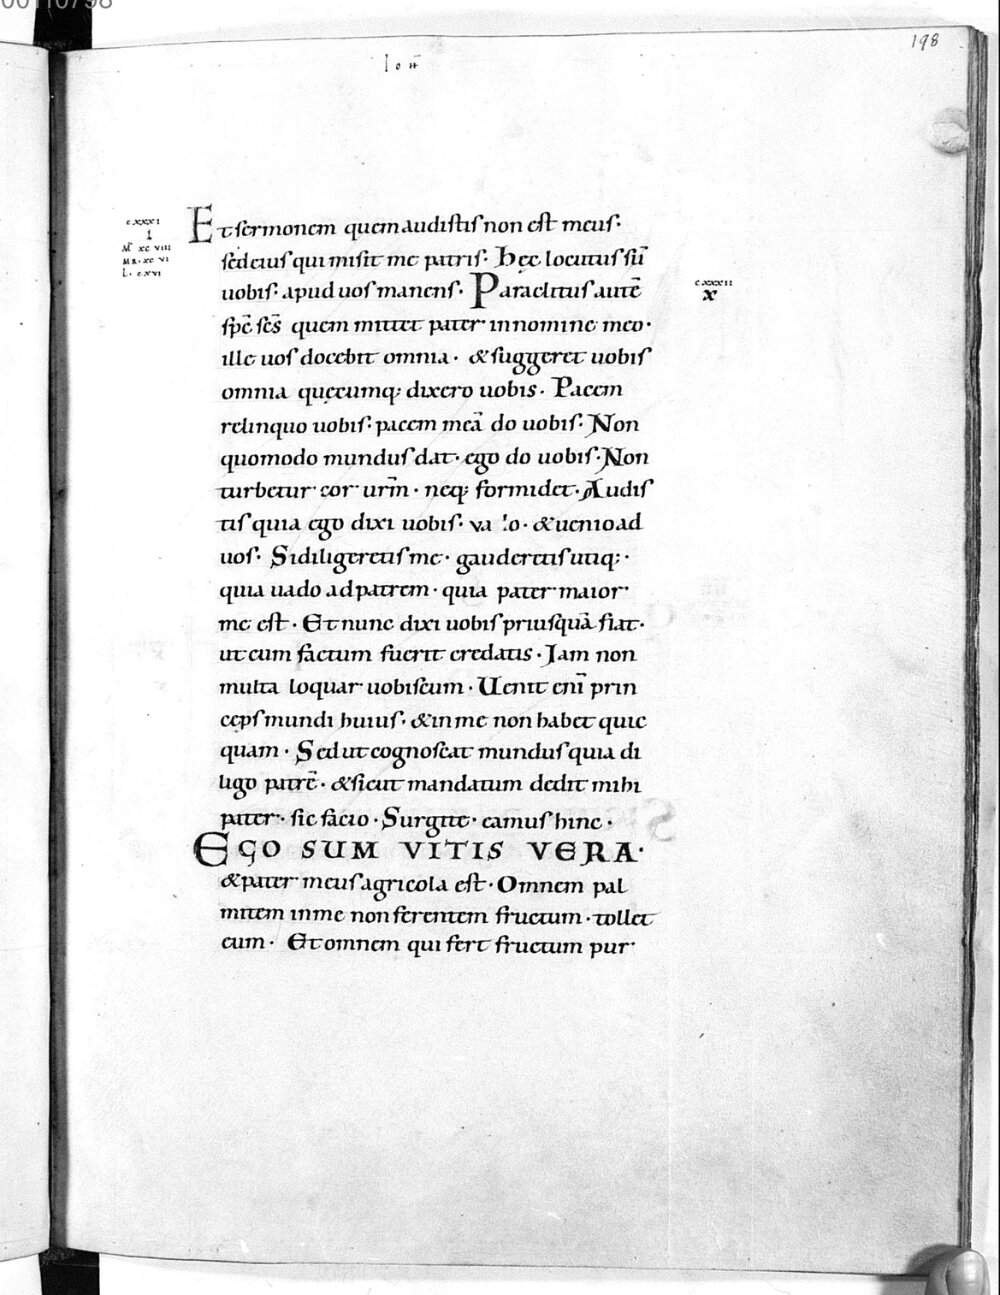 00110798
198
Ioħ
cxxxi
i
Mt xc viii
Mr. xc vi
L. cxvi
Et sermonem quem audistis non est meus·
sed eius qui misit me patris· Hęc locutus sū
uobis· apud uos manens· Paraclitus autē
cxxxii
x
sp̄c sc̄s quem mittet pater in nomine meo·
ille uos docebit omnia· & suggeret uobis
omnia quęcumq; dixero uobis· Pacem
relinquo uobis· pacem meā do uobis· Non
quomodo mundus dat· ego do uobis· Non
turbetur cor ur̄m· neq; formidet· Audis
tis quia ego dixi uobis· & uenio ad
uos· Si diligeretis me· gauderetis utiq;·
quia uado ad patrem· quia pater maior
me est· Et nunc dixi uobis priusquā fiat·
ut cum factum fuerit credatis· Iam non
multa loquar uobiscum· Uenit enī prin
ceps mundi huius· & in me non habet quic
quam· Sed ut cognoscat mundus quia di
ligo patrē· & sicut mandatum dedit mihi
pater· sic facio· Surgite· eamus hinc·
EGO SUM VITIS VERA·
& pater meus agricola est· Omnem pal
mitem in me non ferentem fructum· tollet
eum· Et omnem qui fert fructum pur